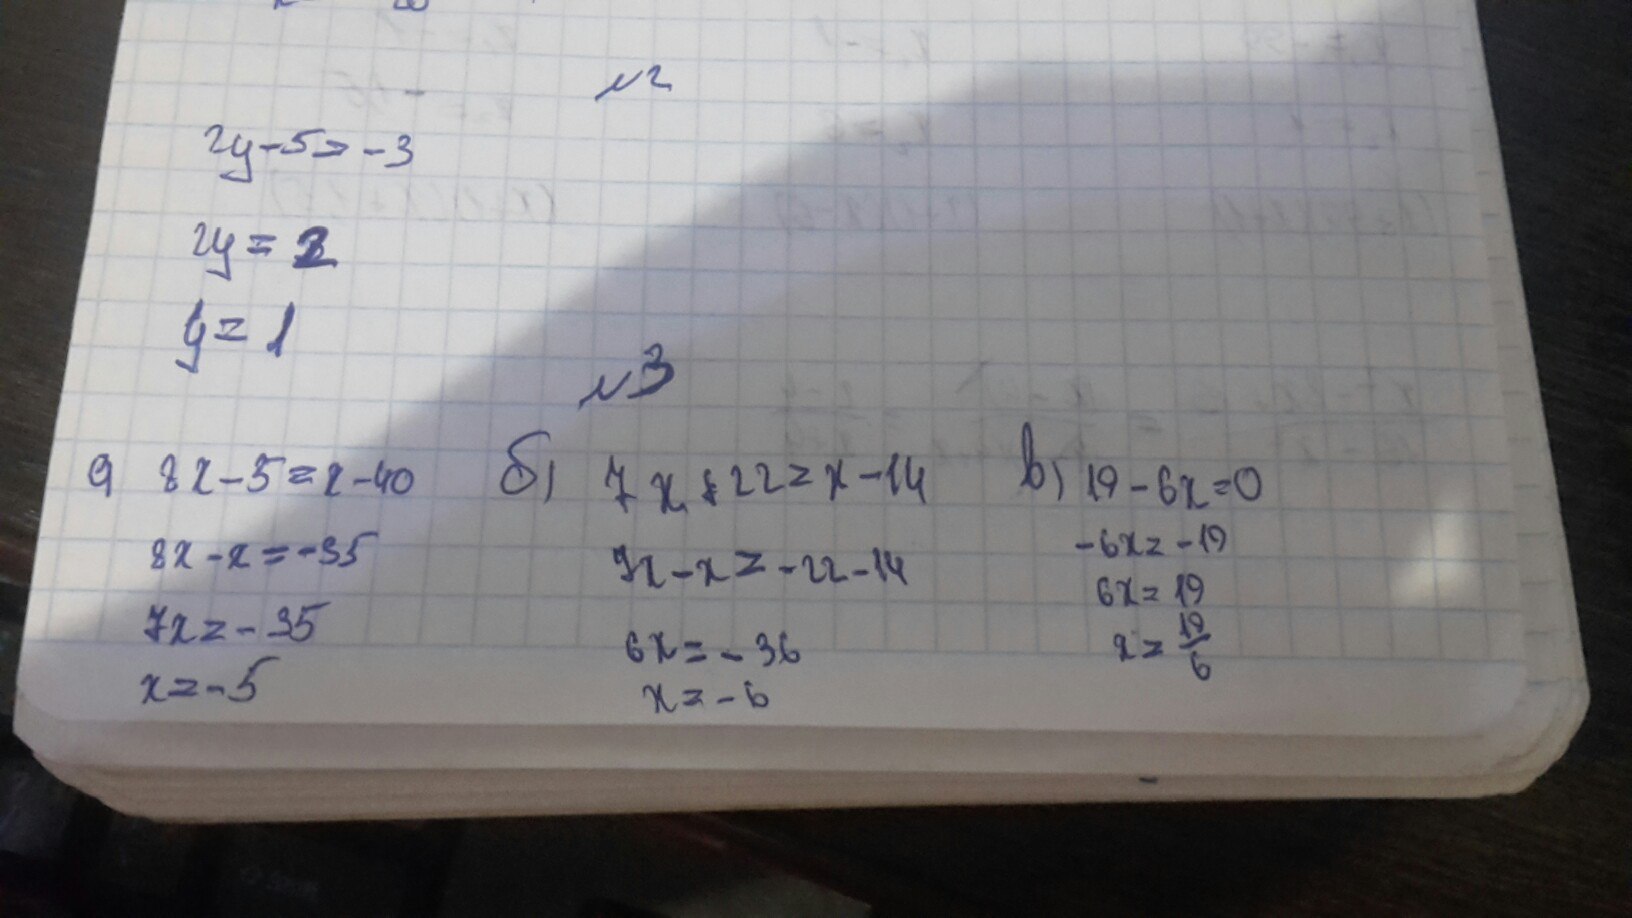 №2
2y-5=-3
2y=2
y=1
№3
а 8x-5=x-40
8x-x=-35
7x=-35
x=-5
б) 7x+22=x-14
7x-x=-22-14
6x=-36
x=-6
в) 19-6x=0
-6x=-19
6x=19
x=19/6